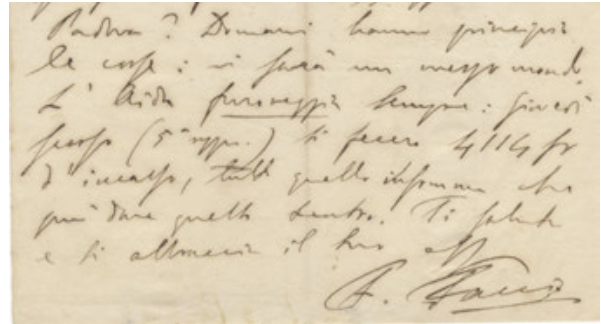 Padova? Domani hanno principio
le corse: vi sarà un mezzo mondo.
L'Aida furoreggia sempre: Giovedì
scorso (5ª rappr.) si fecero 4114 fr
d'incasso, tutto quello insomma che
può dare quel teatro. Ti saluta
e ti abbraccia il tuo aff
F. Faccio